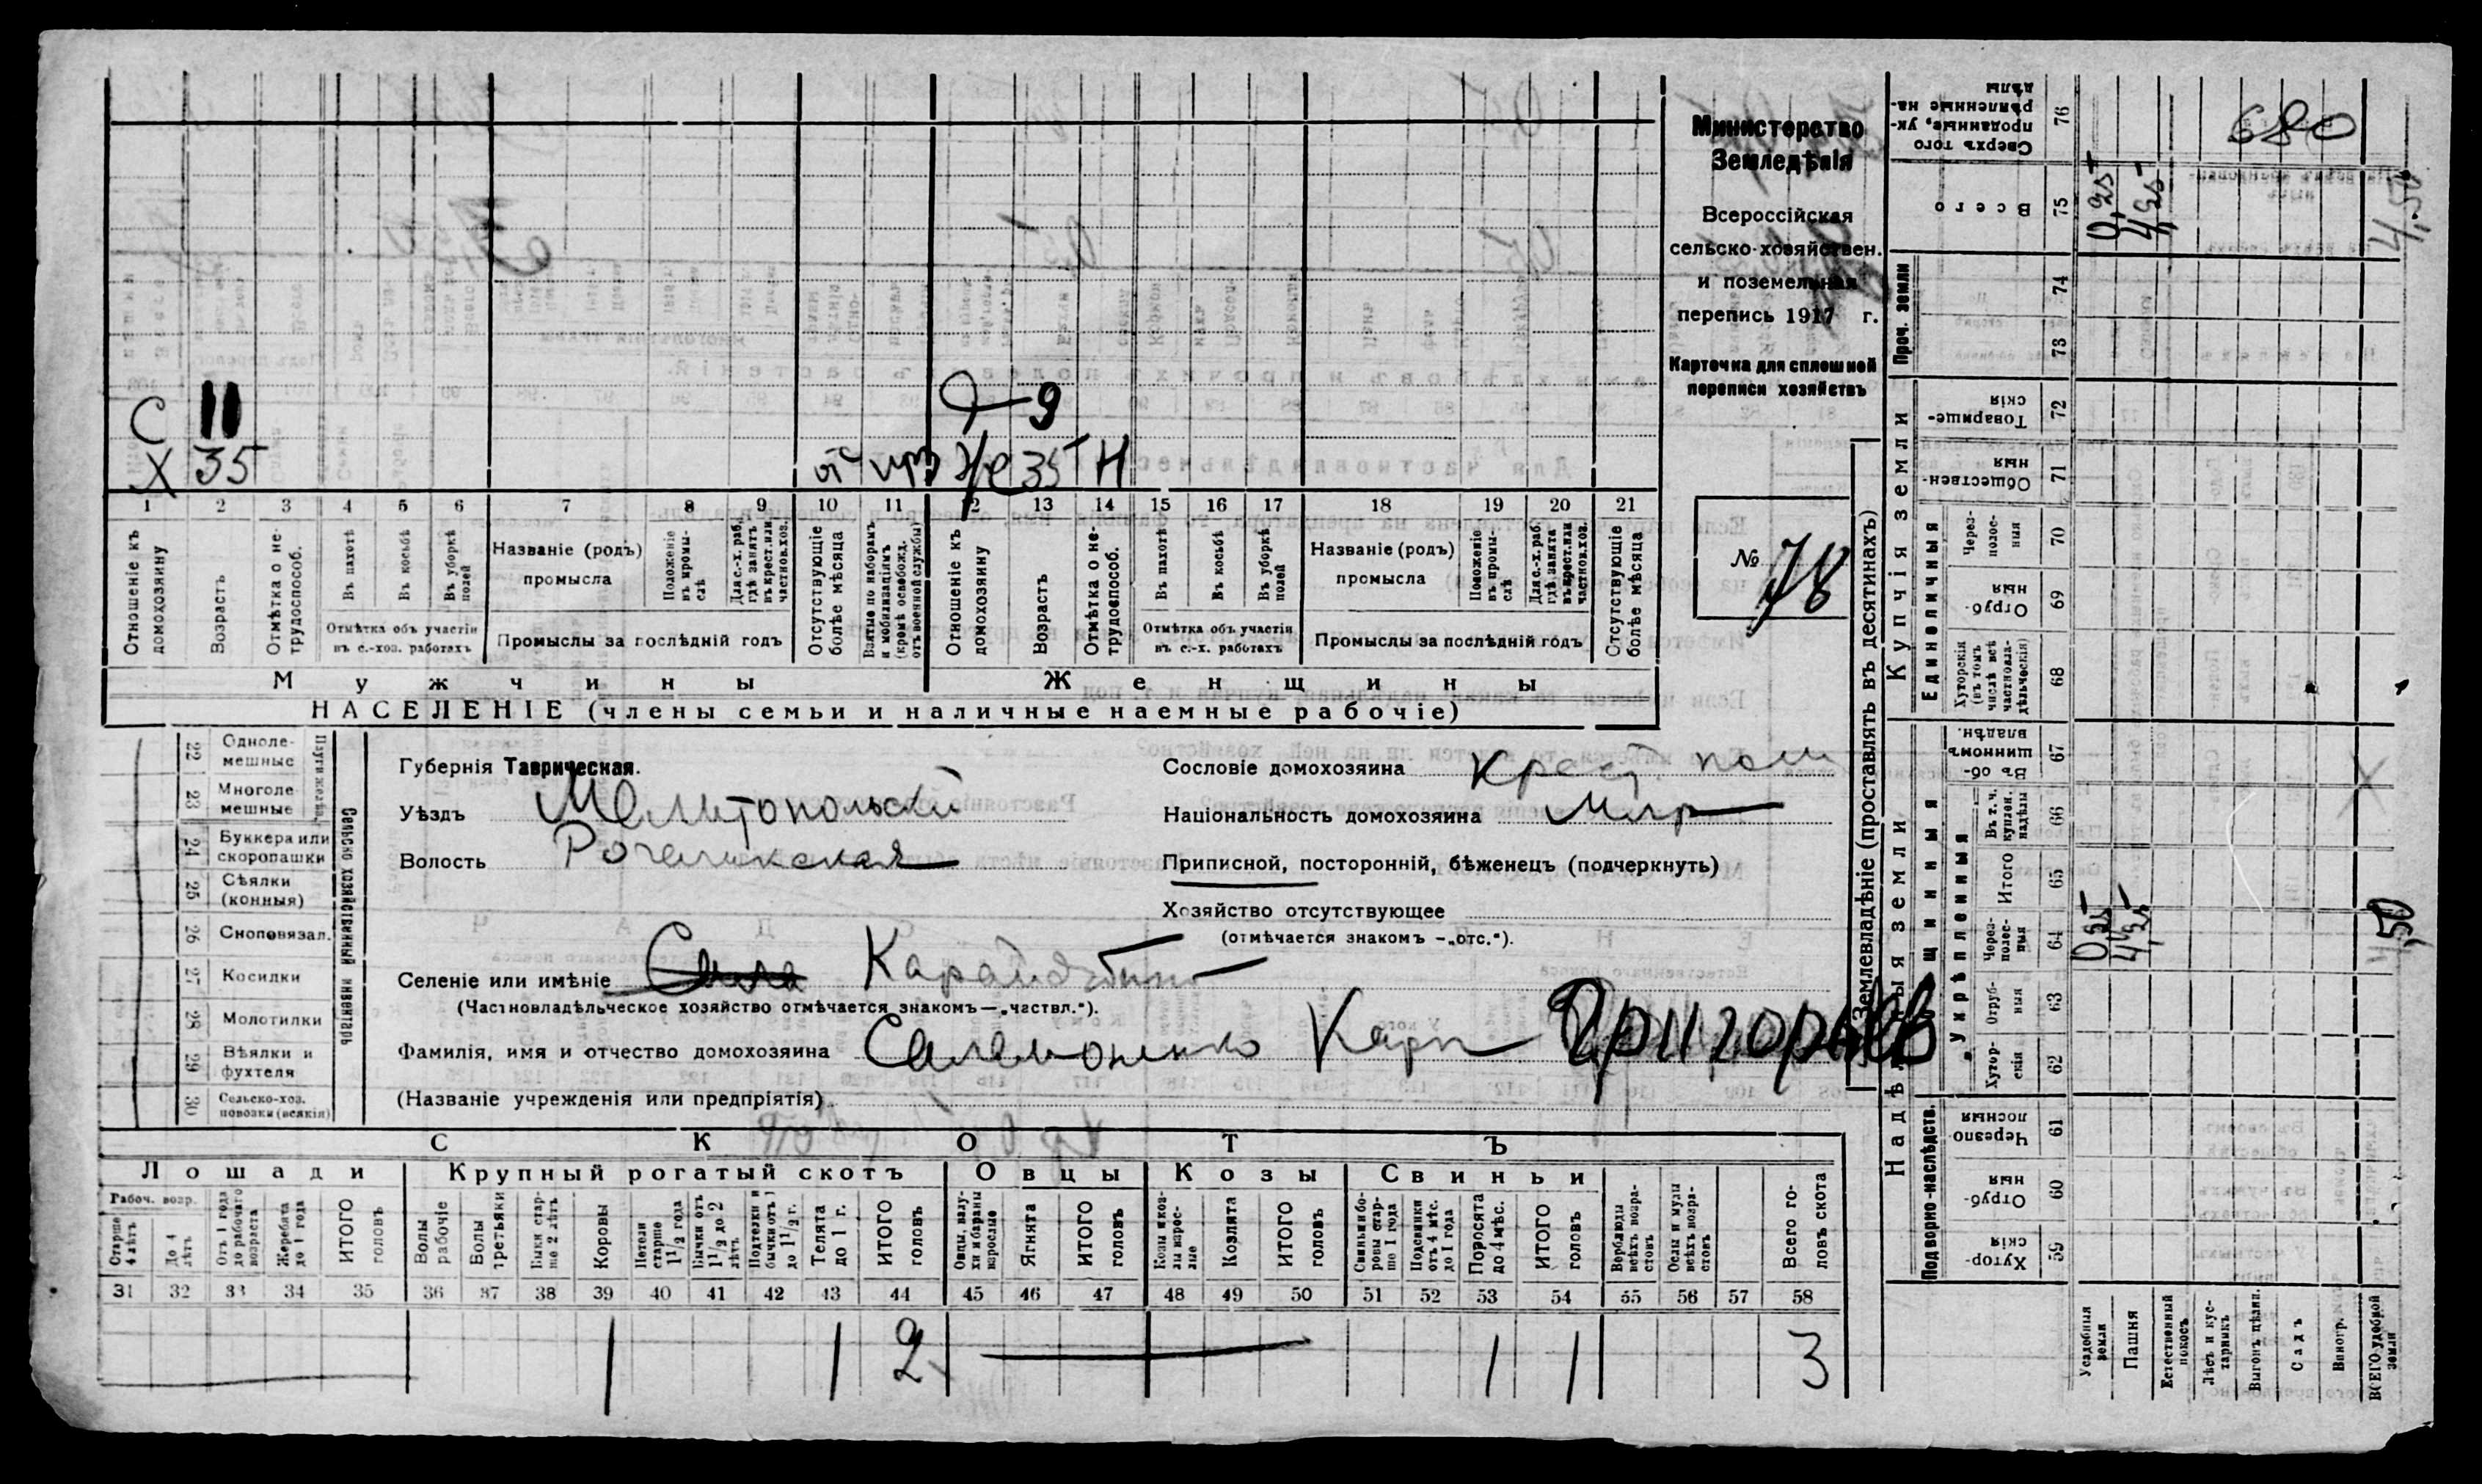 Министерство
Земледѣлія
Всероссійская
сельско-хозяйствен.
и поземельная
перепись 1917 г.
Карточка для сплошной
переписи хозяйствъ
№ 78
С 11
Х 35
Д 9
Ж 35 Н
1 2 3 4 5 6 7 8 9 10 11 12 13 14 15 16 17 18 19 20 21
Отношеніе къ домохозяину
Возрастъ
Отмѣтка о не-трудоспособ.
Въ пахотѣ
Въ косьбѣ
Въ уборкѣ полей
Отмѣтка объ участіи въ с.-хоз. работахъ
Названіе (родъ) промысла
Положеніе въ промы-слѣ
Для с.-х. раб. гдѣ занятъ въ крест. или частнов. хоз.
Промыслы за послѣдній годъ
Отсутствующіе болѣе мѣсяца
Взятые по наборамъ и мобилизаціямъ (кромѣ освобожд. отъ военной службы)
Отношеніе къ домохозяину
Возрастъ
Отмѣтка о не-трудоспособ.
Въ пахотѣ
Въ косьбѣ
Въ уборкѣ полей
Отмѣтка объ участіи въ с.-х. работахъ
Названіе (родъ) промысла
Положеніе въ промы-слѣ
Для с.-х. раб. гдѣ занята въ крест. или частнов. хоз.
Промыслы за послѣдній годъ
Отсутствующіе болѣе мѣсяца
Мужчины Женщины
НАСЕЛЕНІЕ (члены семьи и наличные наемные рабочіе)
Сельско хозяйственный инвентарь
22 Одноле-мешные
23 Многоле мешные
24 Буккера или скоропашки
25 Сѣялки (конныя)
26 Сноповязал.
27 Косилки
28 Молотилки
29 Вѣялки и фухтеля
30 Сельско-хоз. повозки (всякія)
Губернія Таврическая.
Уѣздъ Мелитопольскій
Волость Рогачикская
Сословіе домохозяина крест
Національность домохозяина Млр
Приписной, посторонній, бѣженецъ (подчеркнуть)
Хозяйство отсутствующее
(отмѣчается знакомъ —„отс.“).
Селеніе или имѣніе
(Частновладѣльческое хозяйство отмѣчается знакомъ—„частвл.“).
Фамилія, имя и отчество домохозяина Карп Григорьев
(Названіе учрежденія или предпріятія)
СКОТЪ
Лошади Крупный рогатый скотъ Овцы Козы Свиньи
Рабоч. возр.
Старше 4 лѣтъ
До 4 лѣтъ
Отъ 1 года до рабочаго возраста
Жеребята до 1 года
ИТОГО головъ
Волы рабочіе
Волы третьяки
Быки стар-ше 2 лѣтъ
Коровы
Нетели старше 1 1/2 года
Бычки отъ 1 1/2 до 2 лѣтъ
Подтелки и бычки отъ 1 до 1 1/2 г.
Телята до 1 г.
ИТОГО головъ
Овцы, валу-хи и бараны взрослые
Ягнята
ИТОГО головъ
Козы и коз-лы взрос-лые
Козлята
ИТОГО головъ
Свиньи и бо-ровы стар-ше 1 года
Подсвинки отъ 4 мѣс. до 1 года
Поросята до 4 мѣс.
ИТОГО головъ
Верблюды всѣхъ возра-стовъ
Ослы и мулы всѣхъ возра-стовъ
Всего го-ловъ скота
31 32 33 34 35 36 37 38 39 40 41 42 43 44 45 46 47 48 49 50 51 52 53 54 55 56 57 58
1 1 2 — 1 1 3
Землевладѣніе (проставлять въ десятинахъ)
Купчія земли
Надѣльныя земли
Сверхъ того проданные, ук-рѣпленные на-дѣлы 76
Всего 75
Проч. земли
74
73
Товарище-скія 72
Обществен-ныя 71
Единоличныя
Через-полос-ныя 70
Отруб-ныя 69
Хуторскія (въ томъ числѣ всѣ частновла-дѣльческія) 68
Въ об-щинномъ владѣн. 67
Укрѣпленныя
Въ т. ч. куплен. надѣлы 66
Итого 65
Через-полос-ныя 64
Отруб-ныя 63
Хутор-скія 62
Подворно-наслѣдств.
Черезпо-лосныя 61
Отруб-ныя 60
Хутор-скія 59
Усадебная земля
Пашня
Естественный покосъ
Лѣсъ и кус-тарникъ
Выгонъ цѣлин.
Садъ
Виногр.
ВСЕГО удобной земли
680
0,25
4,25
4,50
0,25
4,25
4,50